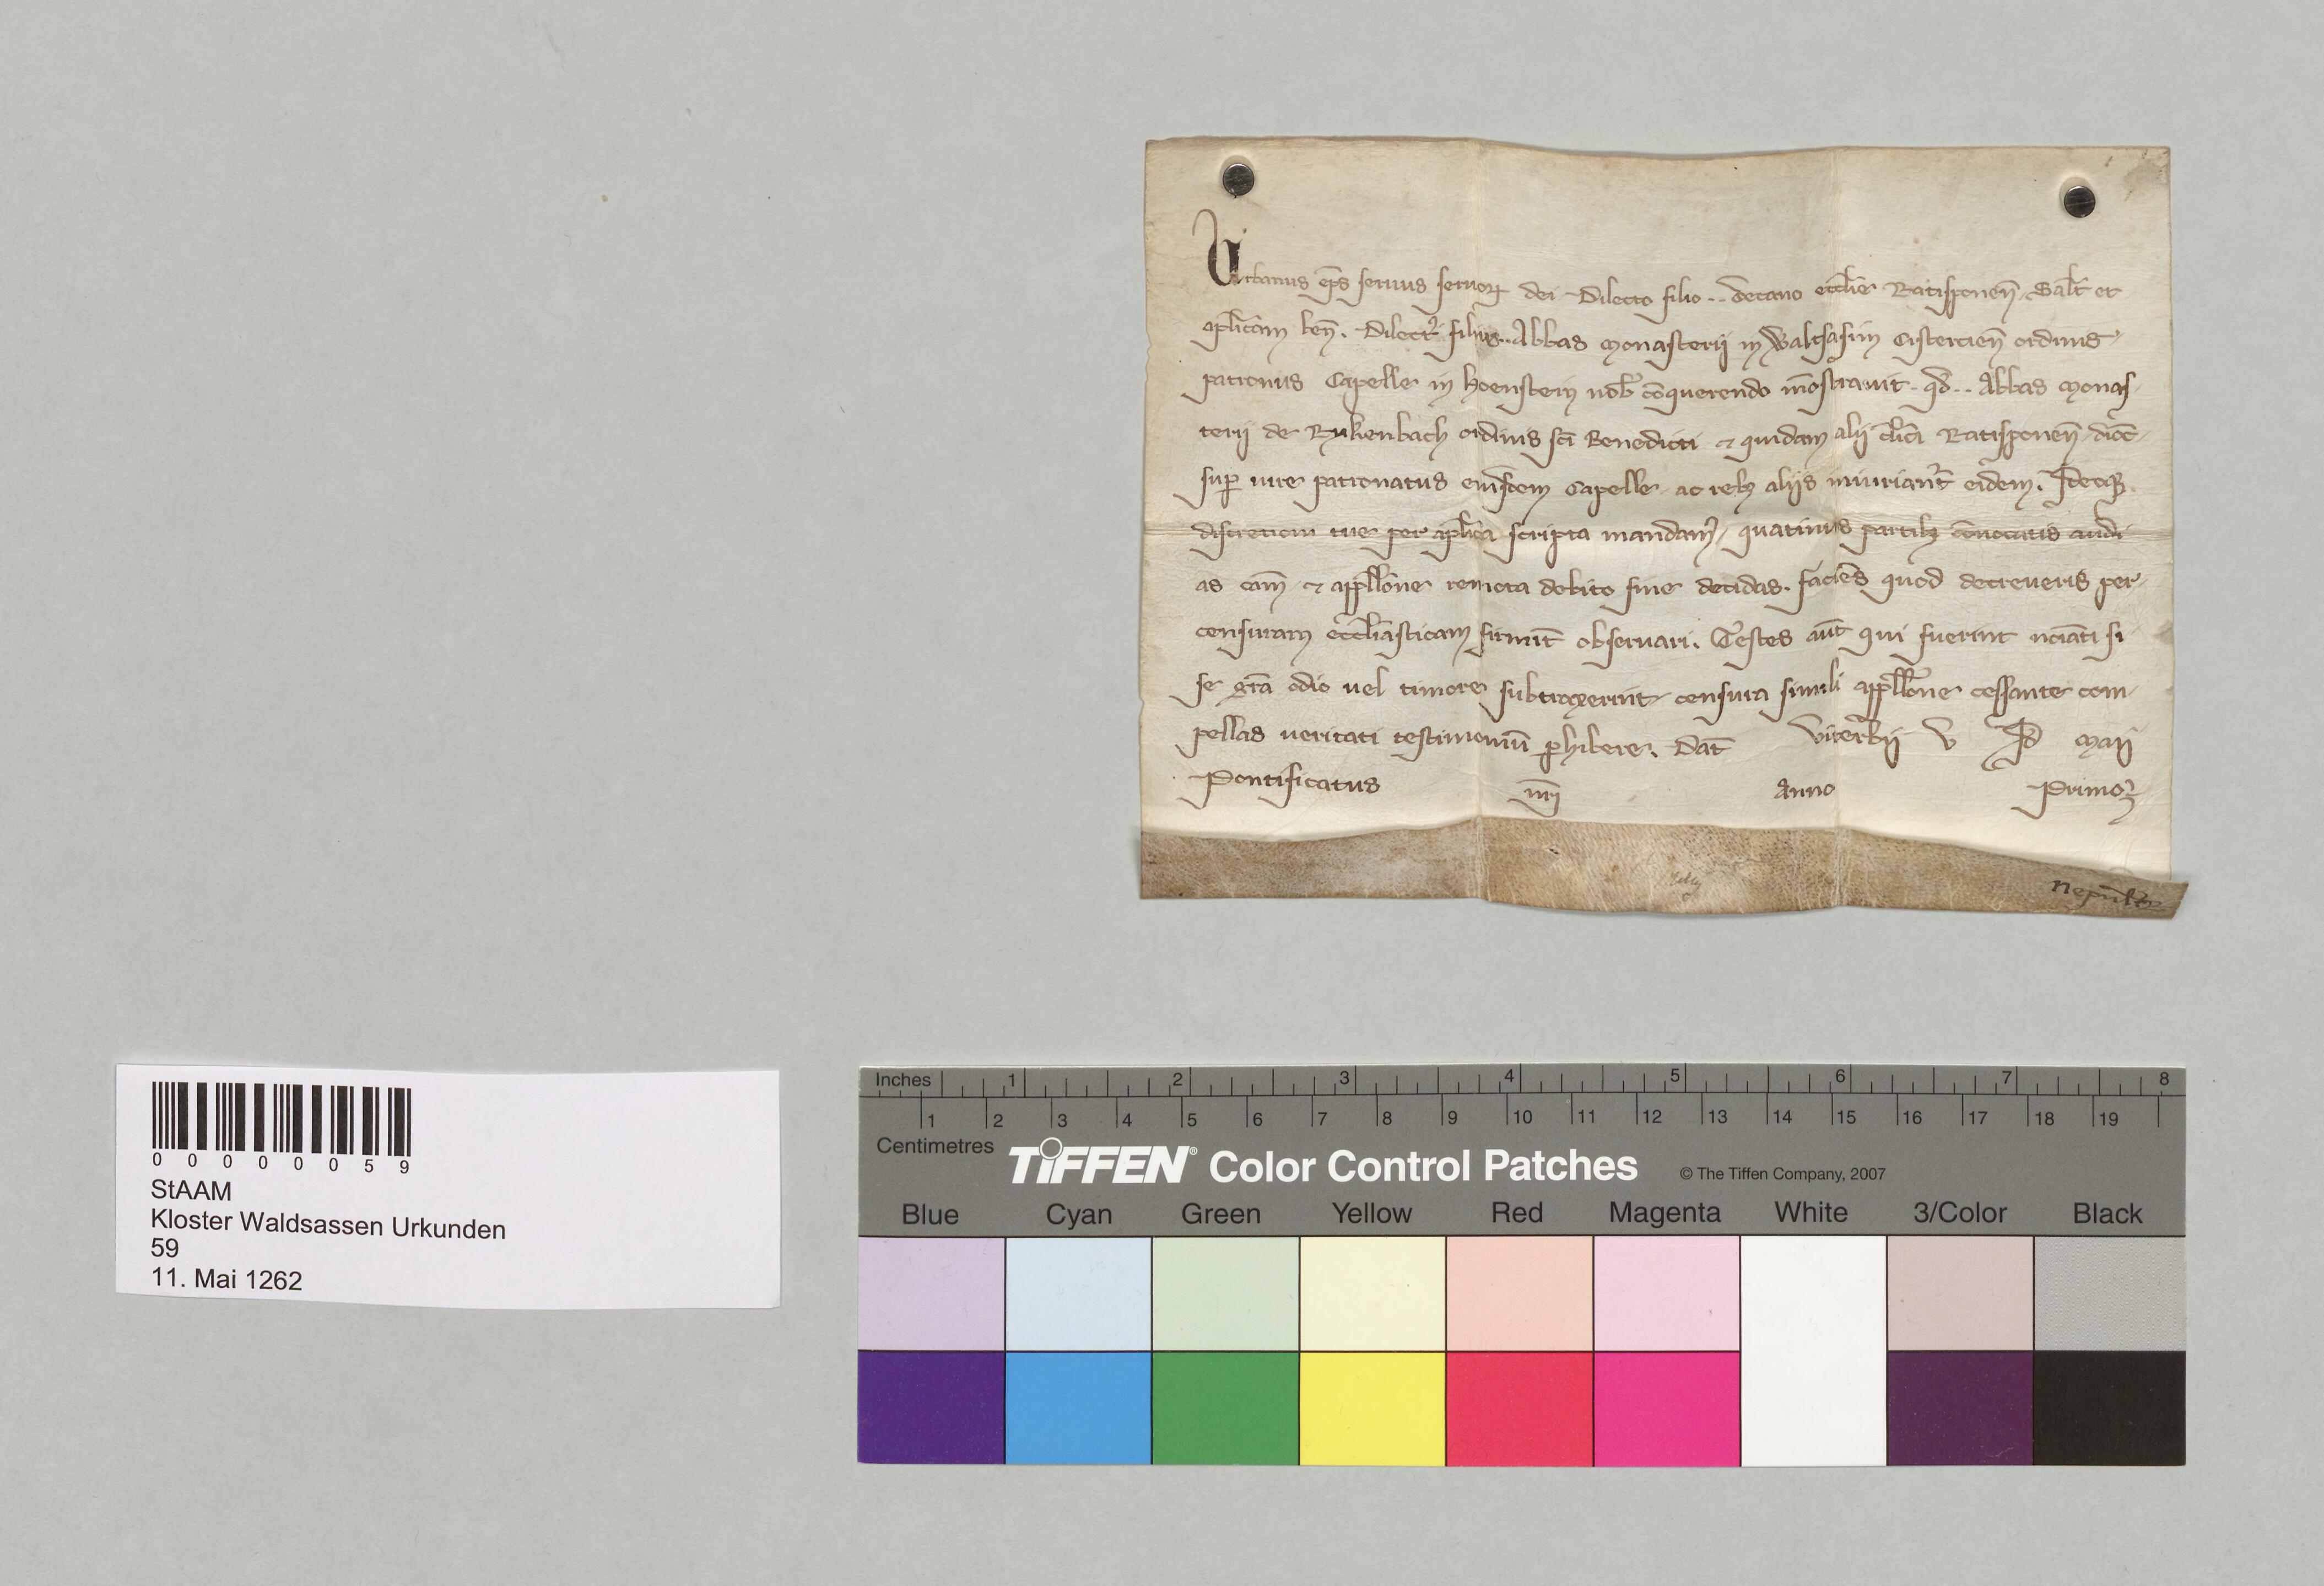 Urbanus ep̄s seruus seruoꝝ dei Dilecto filio .. Decano eccl̄ie Ratisponen̄ Salt̄ et
apl̄icam ben̄. Dilect᷒ filius .. Abbas Monasterij in Waltsasim Cistercien̄ ordinis
patronus Capelle in Hoenstein nob̄ cōquerendo mōstrauit qd̄ .. Abbas Monas
terij de Rykenbach ordinis sc̄i Benedicti ⁊ quidam alij cl̄ici Ratisponen̄ dioc̄
suꝑ iure patronatus eiusdem Capelle ac rebꝫ aliis iniuriant᷑ eidem. Ideoqꝫ
discretioni tue per apl̄ica scripta mandam᷒, quatinus partibꝫ cōuocatis audi
as cām ⁊ appll̄one remota debito fine decidas. faciēs quod decreueris per
censuram eccl̄iasticam firmit̄ obseruari. Testes aūt qui fuerint noīati si
se gr̄a odio uel timore subtraxerint censura simili appll̄one cessante com
pellas ueritati testimoniū ꝑhibere. Dat̄ Viterbij V Id̄ Maij
Pontificatus nr̄i Anno Primo
0 0 0 0 0 0 5 9
StAAM
Kloster Waldsassen Urkunden
59
11. Mai 1262
Inches 1 2 3 4 5 6 7 8
1 2 3 4 5 6 7 8 9 10 11 12 13 14 15 16 17 18 19
Centimetres
TIFFEN® Color Control Patches © The Tiffen Company, 2007
Blue Cyan Green Yellow Red Magenta White 3/Color Black